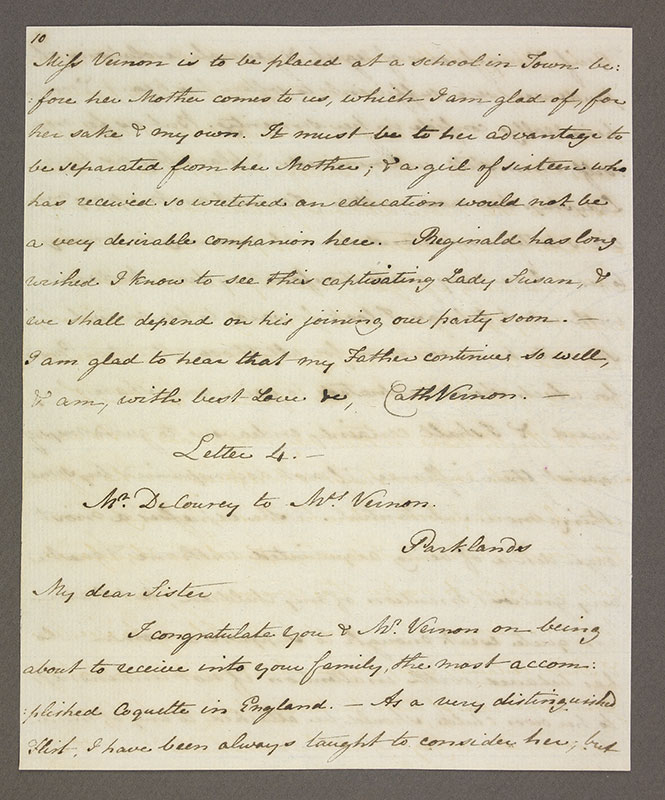 10
Miss Vernon is to be placed at a school in Town be:
:fore her Mother comes to us, which I am glad of, for
her sake & my own. It must be to her advantage to
be separated from her Mother; & a girl of sixteen who
has received so wretched an education would not be
a very desirable companion here. — Reginald has long
wished I know to see this captivating Lady Susan, &
we shall depend on his joining our party soon. —
I am glad to hear that my Father continues so well,
& am, with best Love &c, Cath Vernon. —
Letter 4. —
Mr. De Courcy to Mrs. Vernon.
Parklands
My dear Sister
I congratulate you & Mr. Vernon on being
about to receive into your family, the most accom:
:plished Coquette in England. — As a very distinguished
Flirt, I have been always taught to consider her; but